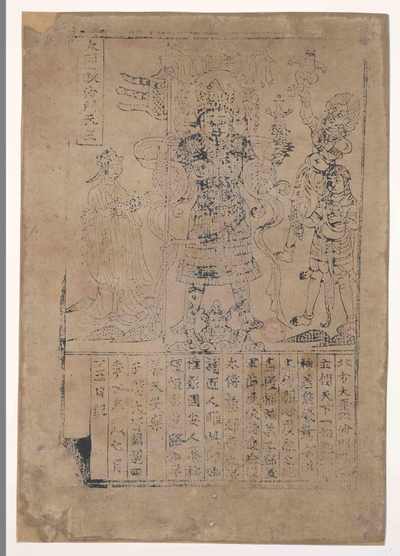 大聖毗沙門天王
北方大聖毗沙門天王
主領天下一切雜類鬼
神若能發意求願
稱心虔敬之徒
盡獲福祐弟子歸義
軍節度使特進檢校
太傅譙郡曹元忠
請匠人雕此印板
惟願國安人泰社稷
恒昌道路和平
普天安樂
于時大晉開運四
年丁未歲七月
十五日紀